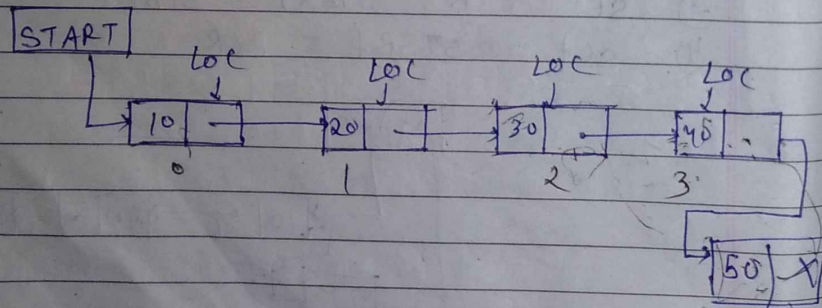 START
LOC LOC LOC LOC
10 20 30 40
0 1 2 3
50 X